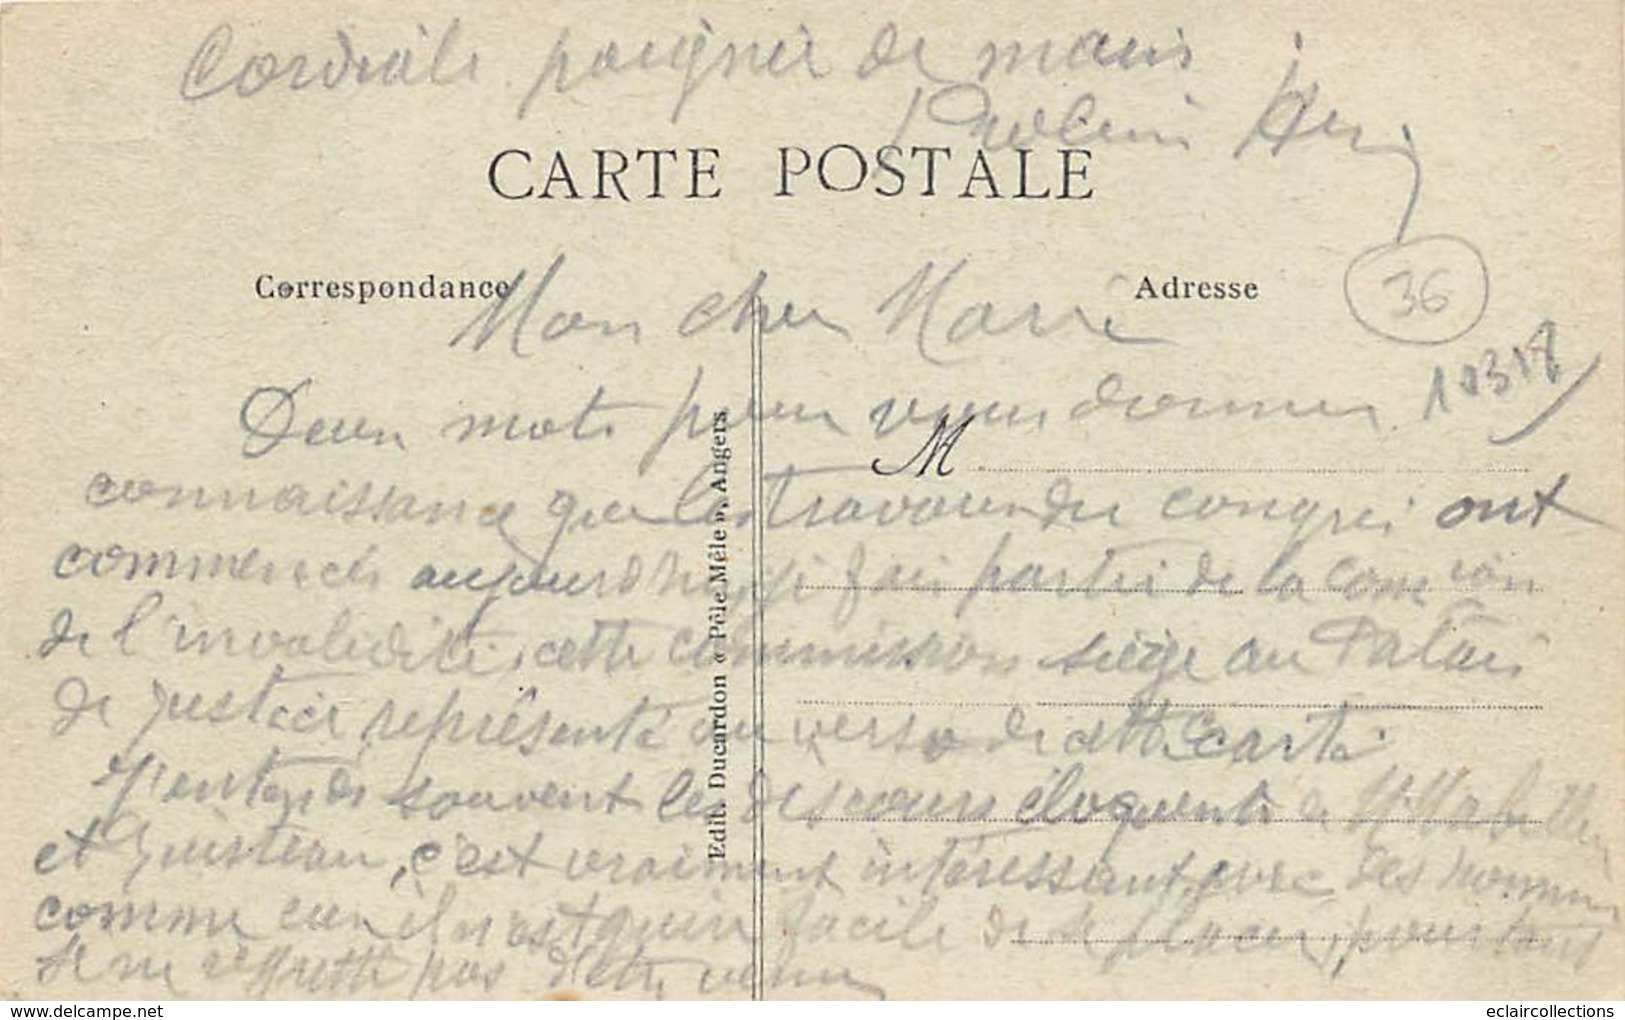 Cordiale poignée de main
CARTE POSTALE
Correspondance
Adresse
36
Mon cher Marie
10318
Deux mots pour vous donner
M
connaissance que les travaux du congrès ont
commencés aujourd'hui, je fais partie de la Comon
de l'invalidité, cette commission siège au Palais
de justice représenté au verso de cette carte
J'entends souvent les discours éloquents de Mr
et Guisteau, c'est vraiment intéressant, avec des hommes
comme eux il n'est guère facile de se placer, pourtant
je ne regrette pas d'être venu
Edit. Ducardon « Pêle Mêle », Angers
eclaircollections
delcampe.net